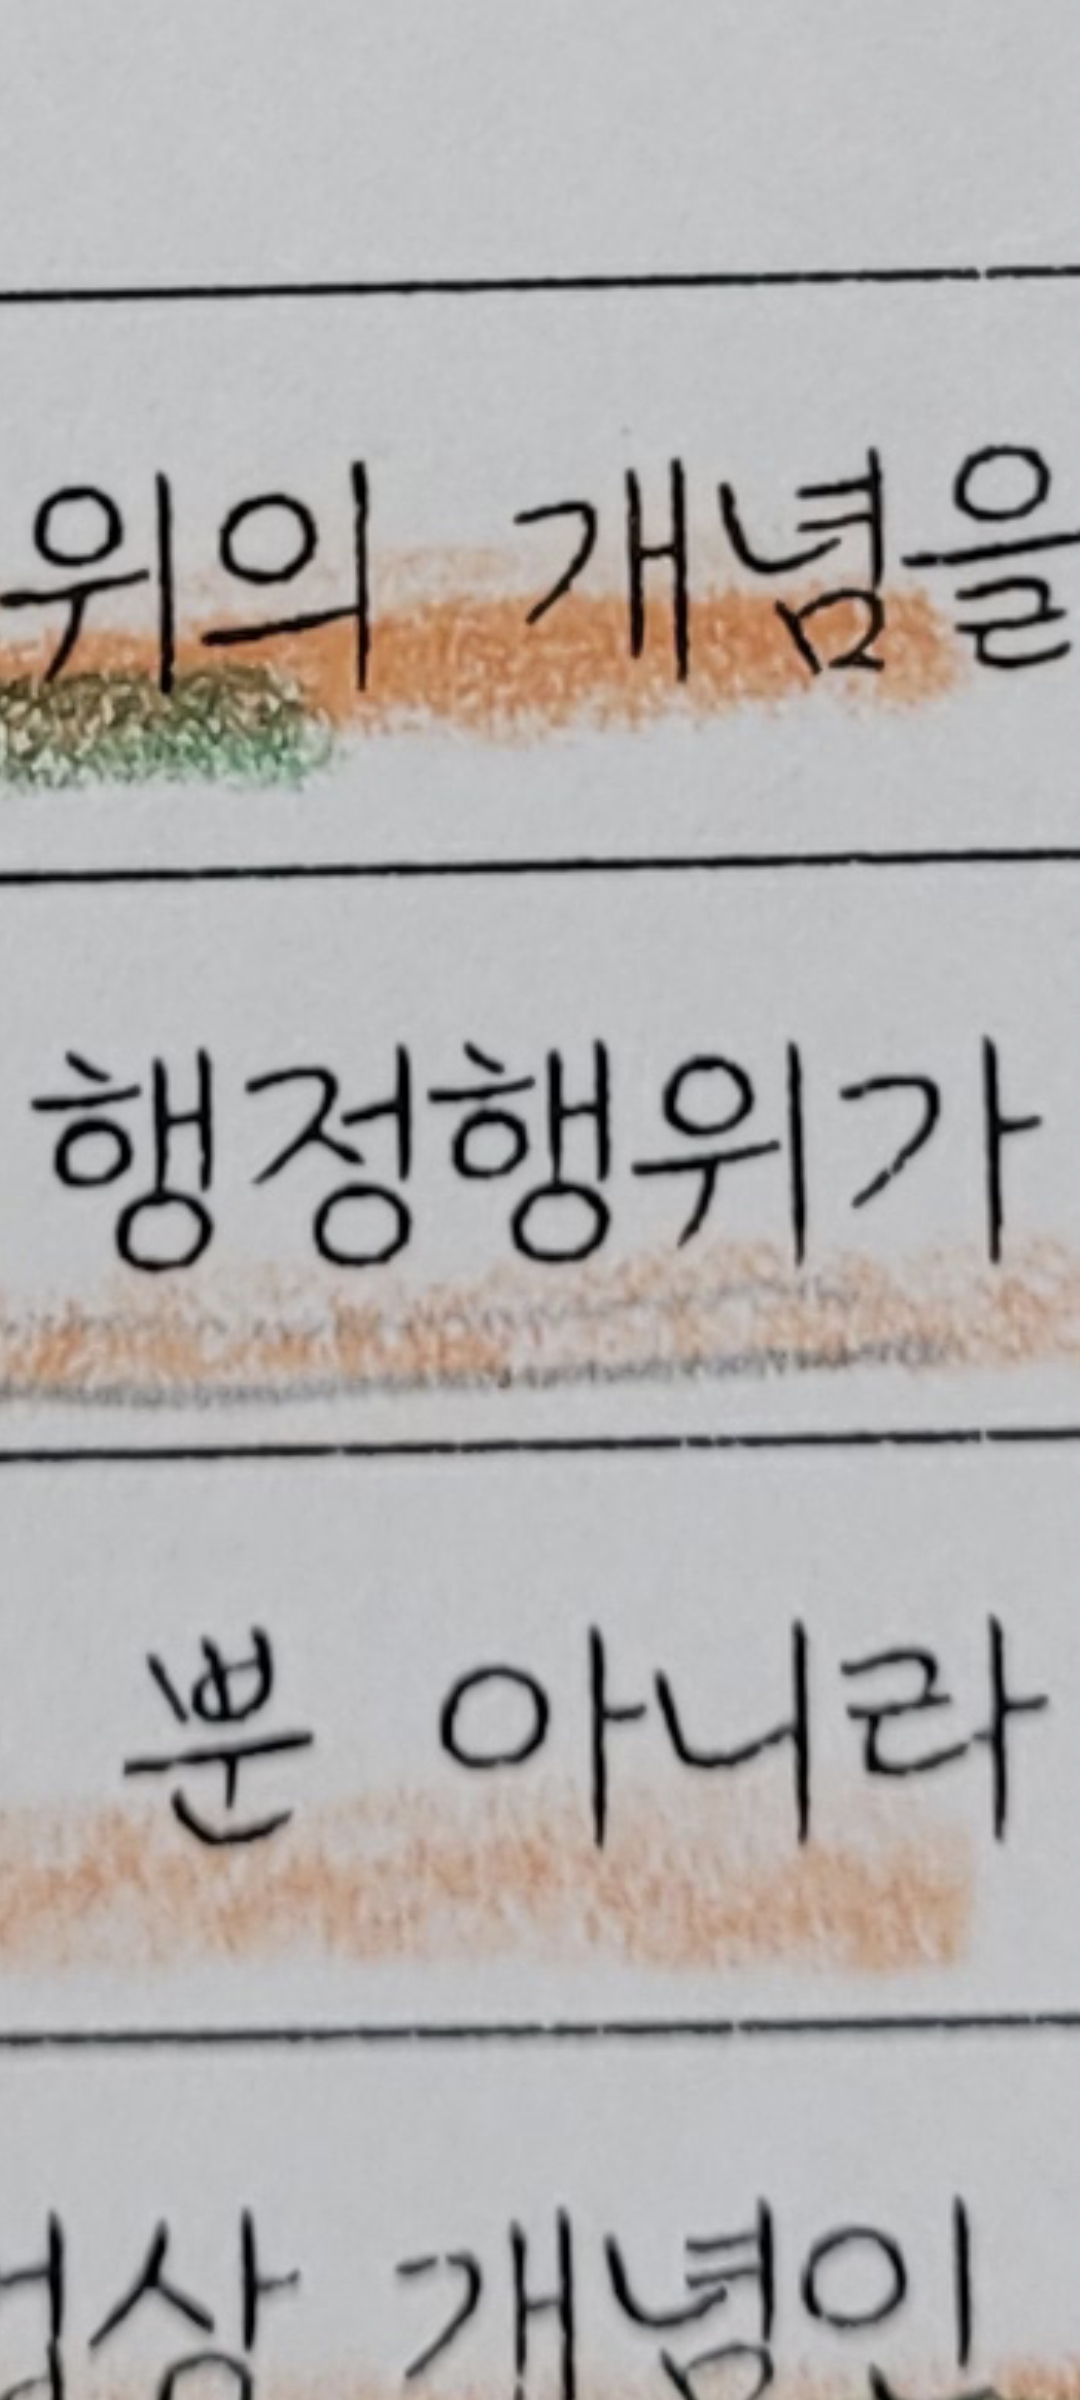 위의 개념을
행정행위가
뿐 아니라
상 개념인